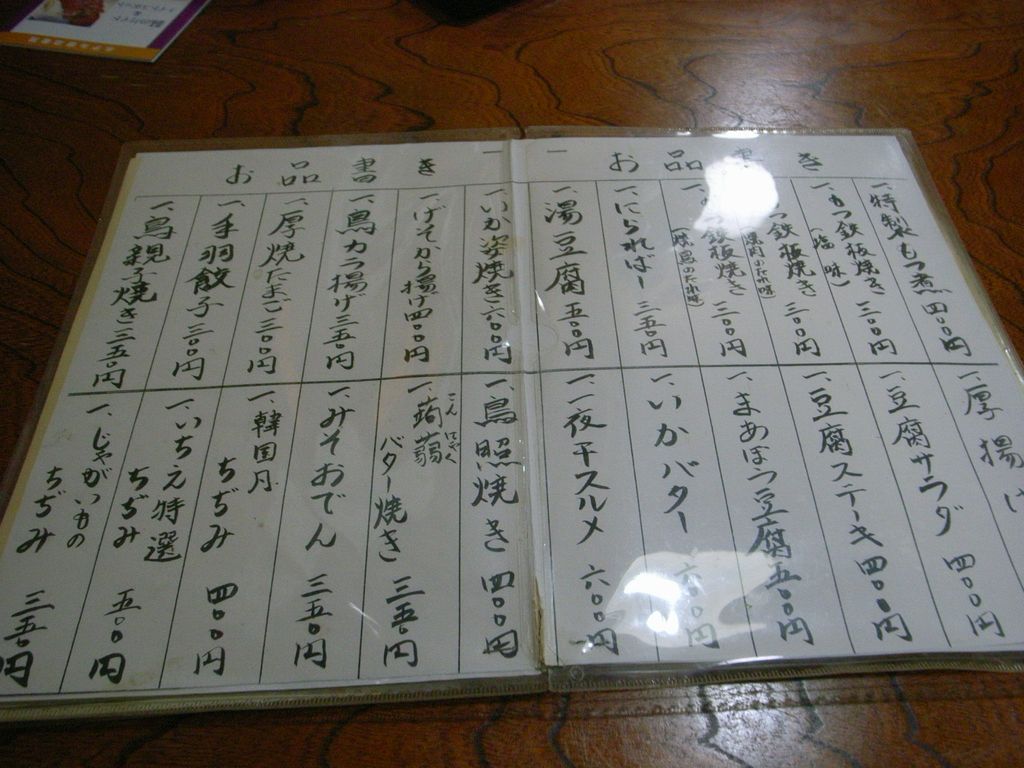 お品書き
一、特製もつ煮 四〇〇円
一、もつ鉄板焼き 三〇〇円
(塩味)
つ鉄板焼き 三〇〇円
鉄板焼き 三〇〇円
(焼鳥のたれ味)
一、にらればー 三五〇円
一、湯豆腐 五〇〇円
一、厚揚げ
一、豆腐サラダ 四〇〇円
一、豆腐ステーキ 四〇〇円
一、まあぼう豆腐 五〇〇円
一、いかバター 六〇〇円
一、一夜干スルメ 六〇〇円
お品書き
一、いか姿焼き 六〇〇円
一、げそから揚げ 四〇〇円
一、鳥カラ揚げ 三五〇円
一、厚焼たまご 三〇〇円
一、手羽餃子 三〇〇円
一、鳥親子焼き 三五〇円
一、鳥照焼き 四〇〇円
一、蒟蒻 こんにゃく
バター焼き 三五〇円
一、みそおでん 三五〇円
一、韓国風
ちぢみ 四〇〇円
一、いちえ特選
ちぢみ 五〇〇円
一、じゃがいもの
ちぢみ 三五〇円